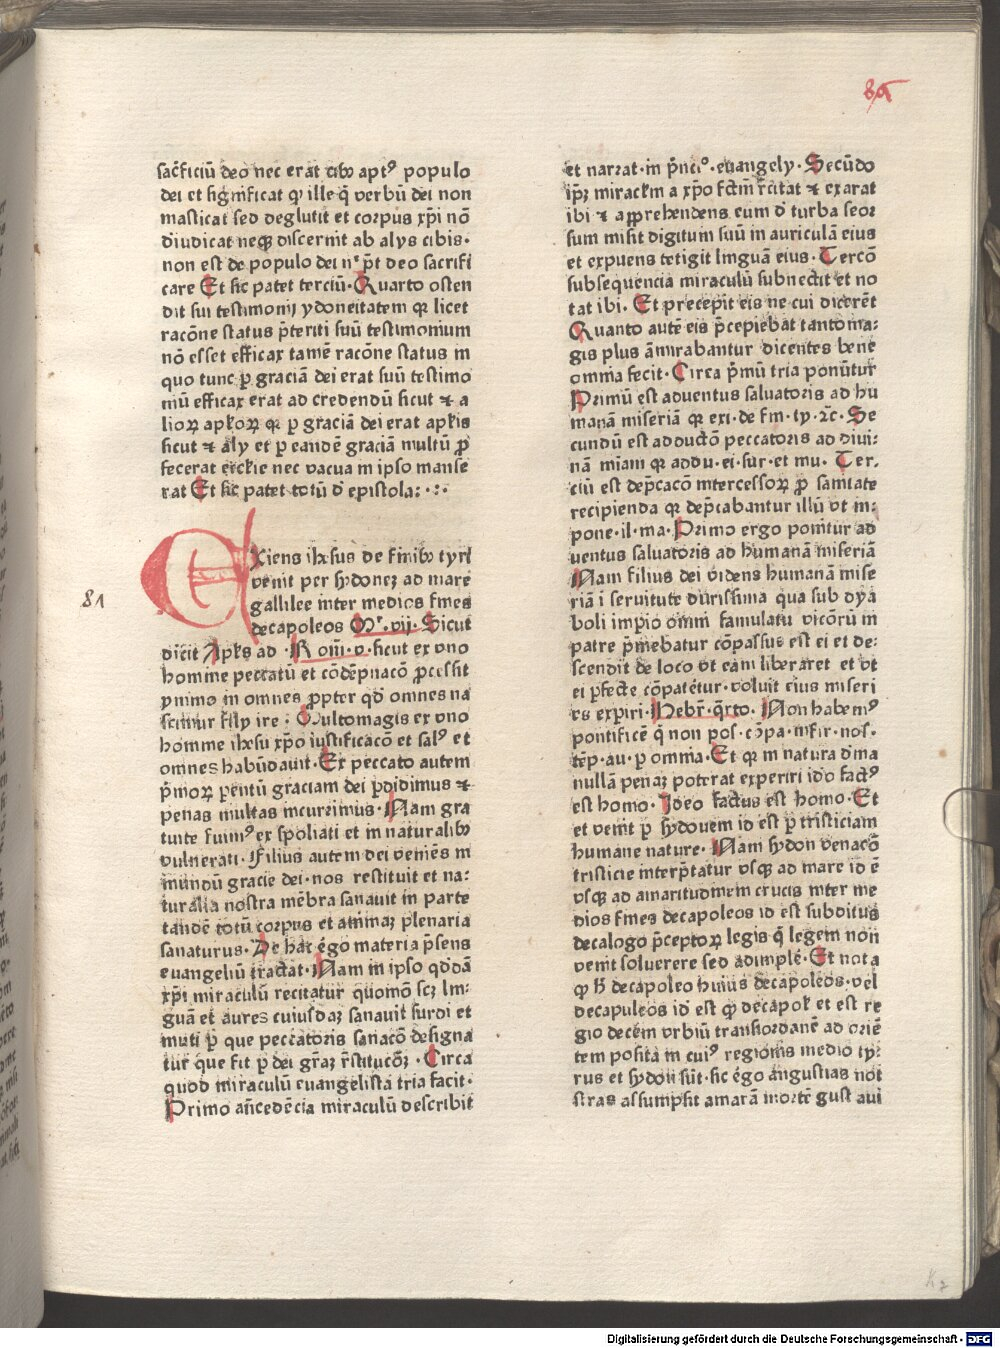 85
sac̄ficiū deo nec erat cibꝫ aptꝰ populo
dei et significat qꝛ ille q̄ verbū dei non
masticat sed deglutit et corpus xp̄i nō
diudicat neqꝫ discernit ab alys cibis·
non est de populo dei nᵉ p̄t deo sacrifi
care Et sic patet terciū· Quarto osten
dit sui testimonij ydoneitatem qꝛ licet
racōne status p̄teriti suū testimonium
nō esset efficax tamē racōne status in
quo tunc ꝑ graciā dei erat suū testimo
niū efficax erat ad credendū sicut ⁊ a
lioꝝ apłoꝝ qꝛ ꝑ graciā dei erat apłus
sicut ⁊ aly et ꝑ eandē graciā multū ꝓ
fecerat ecclie nec vacua in ipso manse
rat Et sic patet totū d̄ epistola:·:·
Exiens ihesus de finibꝫ tyri
venit per sydoneꝫ ad mare
gallilee inter medios fines
decapoleos Mʳ·vij· Sicut
81
dicit Apłs ad ·Rom̄·v·sicut ex vno
homine peccatū et cōdēpnacō ꝓcessit
ymmo in omnes ꝓpter qd̄ omnes na
scimur filij ire : Multomagis ex vno
homine ihesu xp̄o iustificacō et salꝰ et
omnes habūdauit· Ex peccato autem
p̄moꝝ parentū graciam dei ꝑdidimus ⁊
penas multas incurrimus· Nam gra
tuite fuimꝰ ex spoliati et in naturalibꝫ
vulnerati· Filius autem dei veniēs in
mundū gracie dei·nos restituit et na:
turalia nostra mēbra sanauit in parte
tandē totū corpus et animaꝫ plenaria
sanaturus· De hac ēgo materia p̄sens
euangeliū tractat· Nam in ipso qd̄dā
xp̄i miraculū recitatur quomō scꝫ lin:
guā et aures cuiusdaꝫ sanauit surdi et
muti ꝑ que peccatoris sanacō designa
tur que fit ꝑ dei grāꝫ r̄stitucōꝫ · Circa
quod miraculū euangelista tria facit·
Primo an̄cedēcia miraculū describit
et narrat·in p̄nciꝰ·euangely· Secūdo
ip̄ꝫ miraclm a xp̄o fctm̄ r̄citat ⁊ exarat
ibi ⁊ apprehendens eum d̄ turba seor
sum misit digitum suū in auriculā eius
et expuens tetigit linguā eius· Tercō
subsequencia miraculū subnectit et no
tat ibi· Et precepit eis ne cui dicerēt
Quanto autē eis p̄cepiebat tanto ma:
gis plus āmirabantur dicentes bene
omnia fecit· Circa p̄mū tria ponūtur
Primū est aduentus saluatoris ad hu
manā miseriā qꝛ exi·de fin·ty·⁊c̄· Se
cundū est adductō peccatoris ad diui:
nā mīam qꝛ addu·ei·sur·et mu· Ter:
ciū est dep̄cacō intercessoꝝ ꝓ sanitate
recipienda qꝛ dep̄cabantur illū vt im:
pone·il·ma· Primo ergo ponitur ad
uentus saluatoris ad humanā miseriā
Nam filius dei videns humanā mise
riā ī seruitute durissima qua sub dya
boli impio omni famulatu viciorū in
patre p̄mebatur cōpassus est ei et de:
scendit de loco vt eam liberaret et vt
ei ꝑfecte cōpatētur·voluit eius miseri
es exꝑiri· Hebr̄·q̄rto· Non habemꝰ
pontificē q̄ non pos·cōpa·infir·nos·
tēp·au·ꝑ omnia· Et qꝛ in natura diuina
nullā penaꝫ poterat experiri ido factꝰ
est homo· Ideo factus est homo· Et
et venit ꝑ sydonem id est ꝑ tristiciam
humane nature· Nam sydon venacō
tristicie interp̄tatur vsqꝫ ad mare id ē
vsqꝫ ad amaritudinem crucis inter me
dios fines decapoleos id est subditus
decalogo p̄ceptoꝝ legis q̄ legem non
venit soluerere sed adimplē· Et nota
ꝙ h̄ decapoleo huius decapoleos·vel
decapuleos id est ꝙ decapol et est re
gio decem vrbiū transiordanē ad oriē
tem posita in cuiꝰ regionis medio ty:
rus et sydon sūt·sic ēgo angustias not
stras assumpsit amarā mortē gustaui
K 2
Digitalisierung gefördert durch die Deutsche Forschungsgemeinschaft - DFG